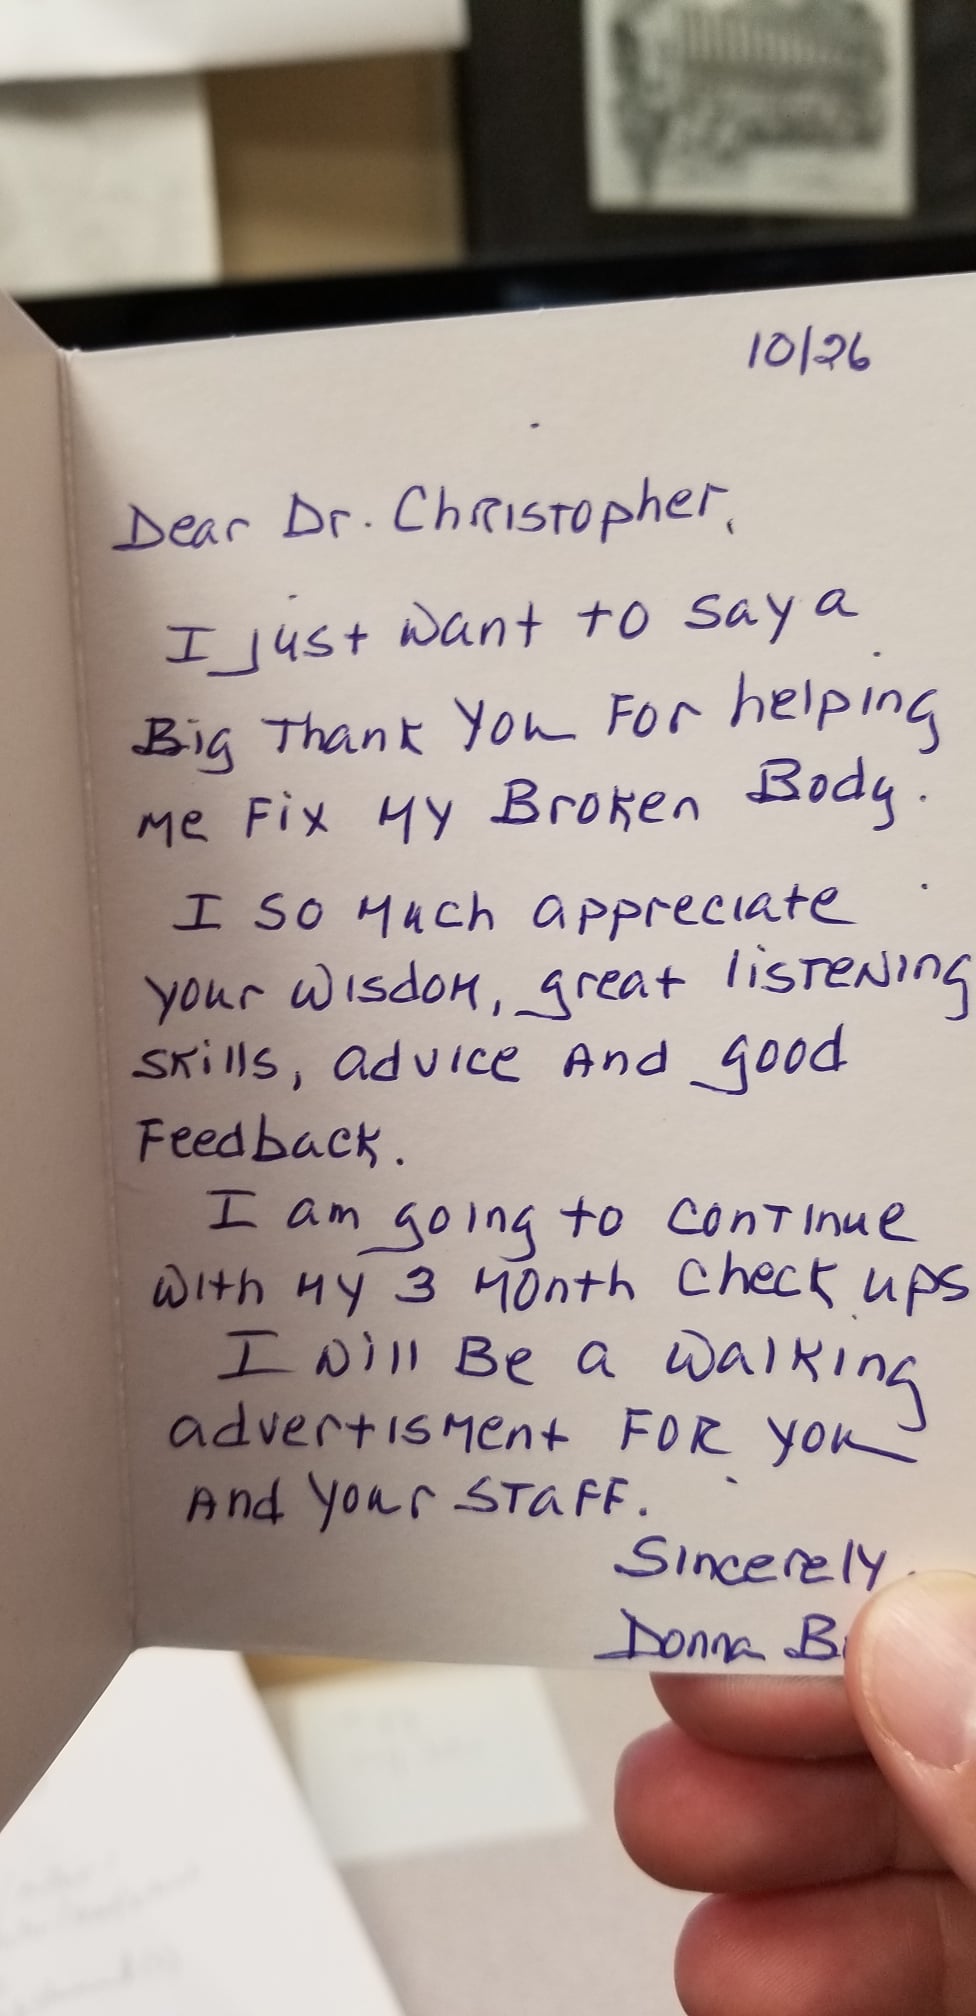 10/26
Dear Dr. Christopher,
I just want to say a
Big Thank You For helping
me Fix My Broken Body.
I so Much appreciate
your wisdom, great listening
skills, advice And good
Feedback.
I am going to continue
with My 3 Month check ups
I will Be a walking
advertisment FOR you
And your STaFF.
Sincerely
Donna